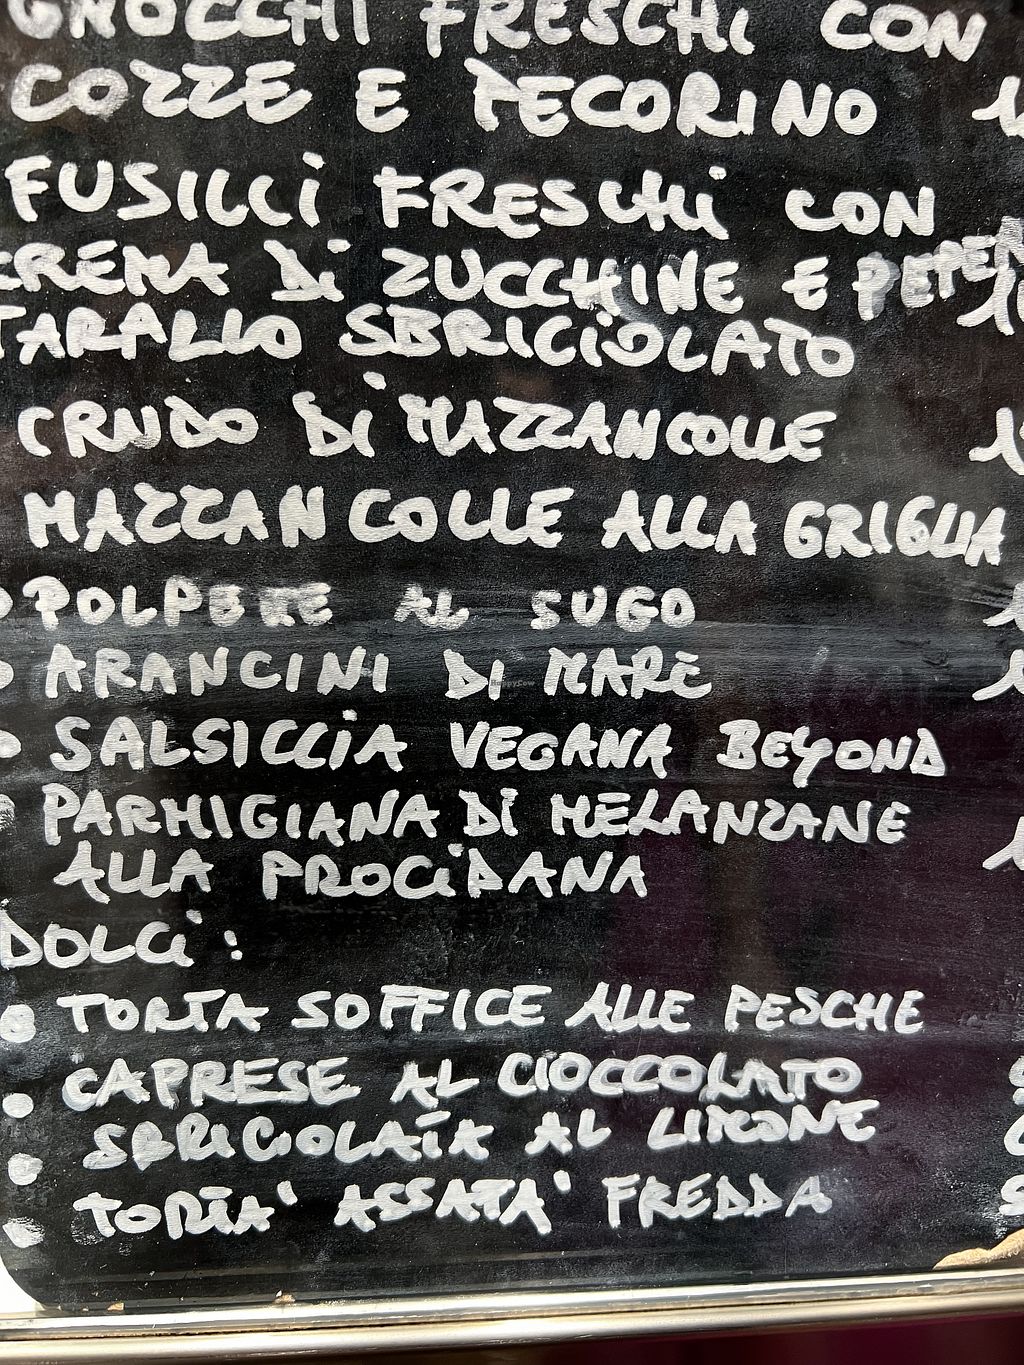 GNOCCHI FRESCHI CON
COZZE E PECORINO
FUSILLI FRESCHI CON
CREMA DI ZUCCHINE E
TARALLO SBRICIOLATO
CRUDO DI MAZZANCOLLE
MAZZANCOLLE ALLA GRIGLIA
POLPETE AL SUGO
ARANCINI DI MARE
SALSICCIA VEGANA BEYOND
PARMIGIANA DI MELANZANE
ALLA PROCIDANA
DOLCI:
TORTA SOFFICE ALLE PESCHE
CAPRESE AL CIOCCOLATO
SBRICIOLATA AL LIMONE
TORTA' ASSATA' FREDDA